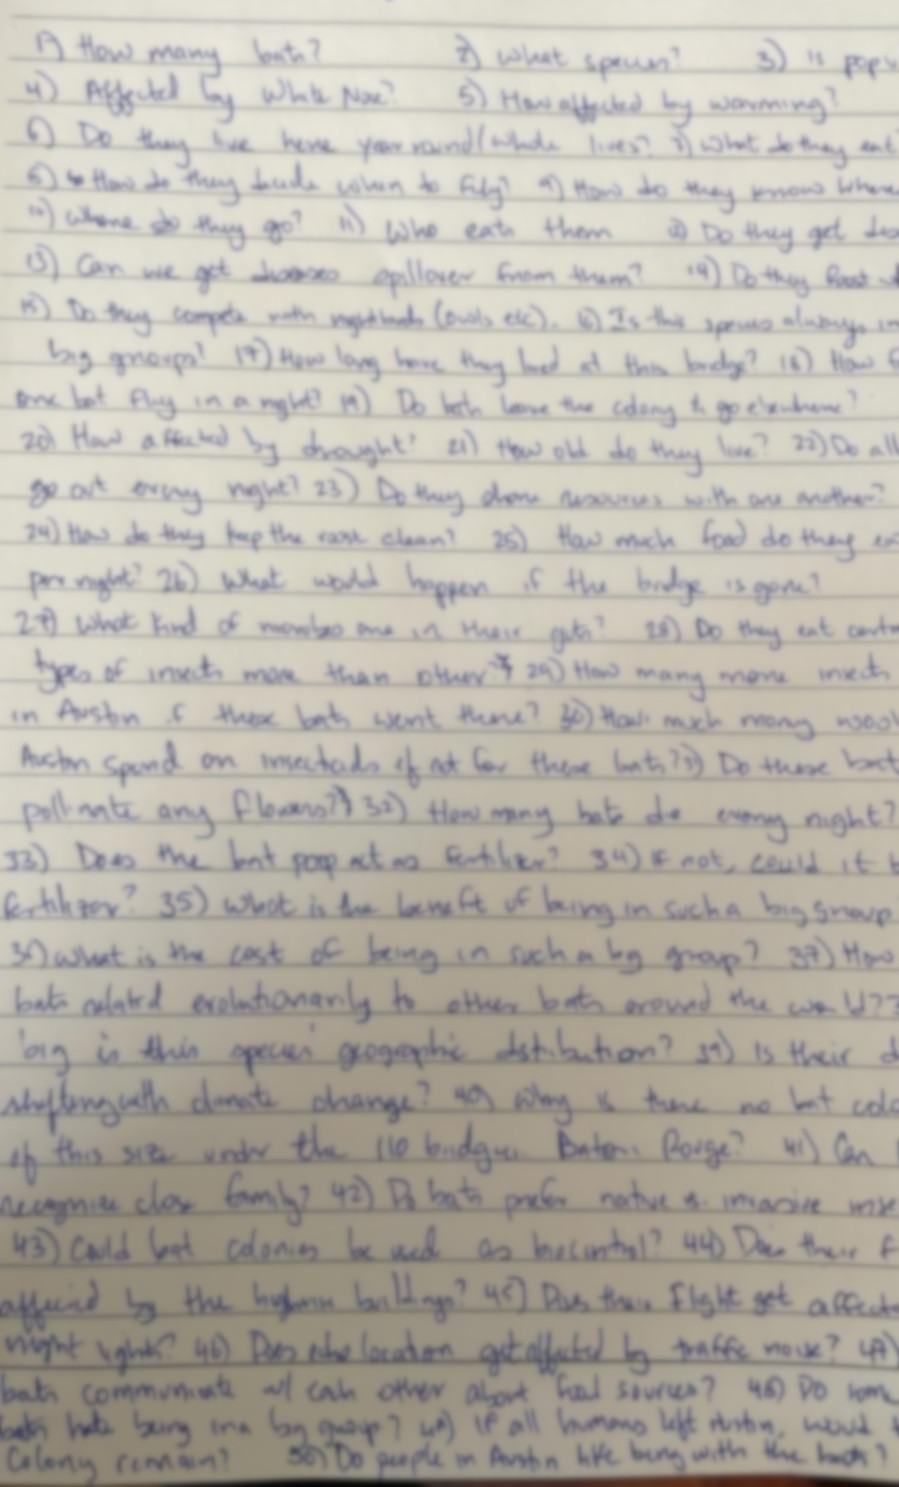 1) How many bats? 2) What species? 3) is popu
4) Affected by White Nose? 5) How affected by warming?
6) Do they live here year round/whole lives? 7) What do they eat
8) How do they decide when to fly? 9) How do they know where
10) Where do they go? 11) Who eats them 12) Do they get
13) Can we get diseases spillover from them? 14) Do they Roost
15) Do they compete with nightbirds (owls etc). 16) Is this species always in
big groups? 17) How long have they lived at this bridge? 18) How
one bat fly in a night? 19) Do bats leave the colony & go elsewhere?
20) How affected by drought? 21) How old do they live? 22) Do all
go out every night? 23) Do they share resources with one another?
24) How do they keep the roost clean? 25) How much food do they
per night? 26) What would happen if the bridge is gone?
27) What kind of microbes are in their guts? 28) Do they eat certa
types of insects more than others? 29) How many more insects
in Austin if these bats weren't there? 30) How much money woul
Austin spend on insecticides if not for these bats? 31) Do these bats
pollinate any flowers? 32) How many bats die every night?
33) Does the bat poop act as fertilizer? 34) If not, could it b
fertilizer? 35) What is the benefit of being in such a big group
36) What is the cost of being in such a big group? 37) How
bats related evolutionarily to other bats around the world?
big is this species' geographic distribution? 39) Is their d
shifting with climate change? 40) Why is there no bat colo
of this size under the 110 bridge in Baton Rouge? 41) Can
recognize close family? 42) Do bats prefer native vs. invasive inse
43) Could bat colonies be used as biocontrol? 44) Does their f
affected by the highrise buildings? 45) Does their flight get affect
night lights? 46) Does echolocation get affected by traffic noise? 47)
bats communicate w/ each other about food sources? 48) Do some
bats hate being in a big group? 49) If all humans left Austin, would t
Colony remain? 50) Do people in Austin like being with the bats?